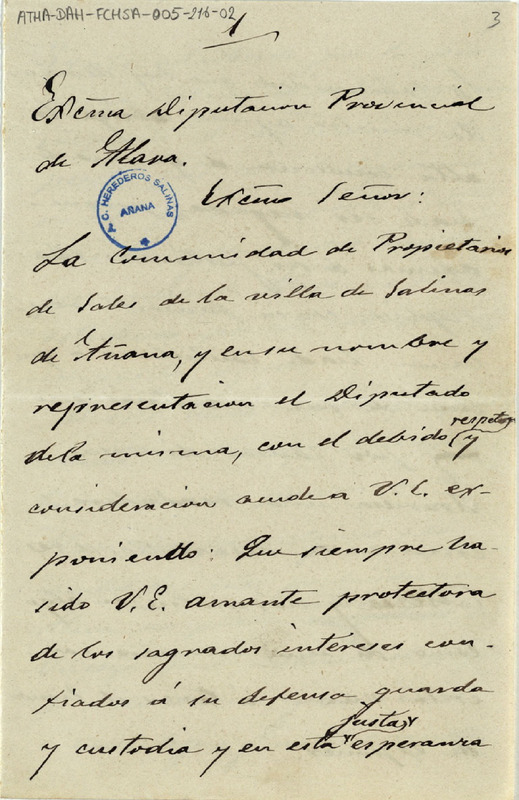 ATHA-DAH-FCHSA-005-216-02
3
1
Excma Diputacion Provincial
de Alava.
C. HEREDEROS SALINAS
AÑANA
Excmo Señor:
La Comunidad de Propietarios
de Sales de la villa de Salinas
de Añana, y en su nombre y
representacion el Diputado
de la misma, con el debido respeto y
consideracion acude a V.E. ex-
poniendo: Que siempre ha
sido V.E. amante protectora
de los sagrados intereses con-
fiados á su defensa guarda
y custodia y en esta justa esperanza